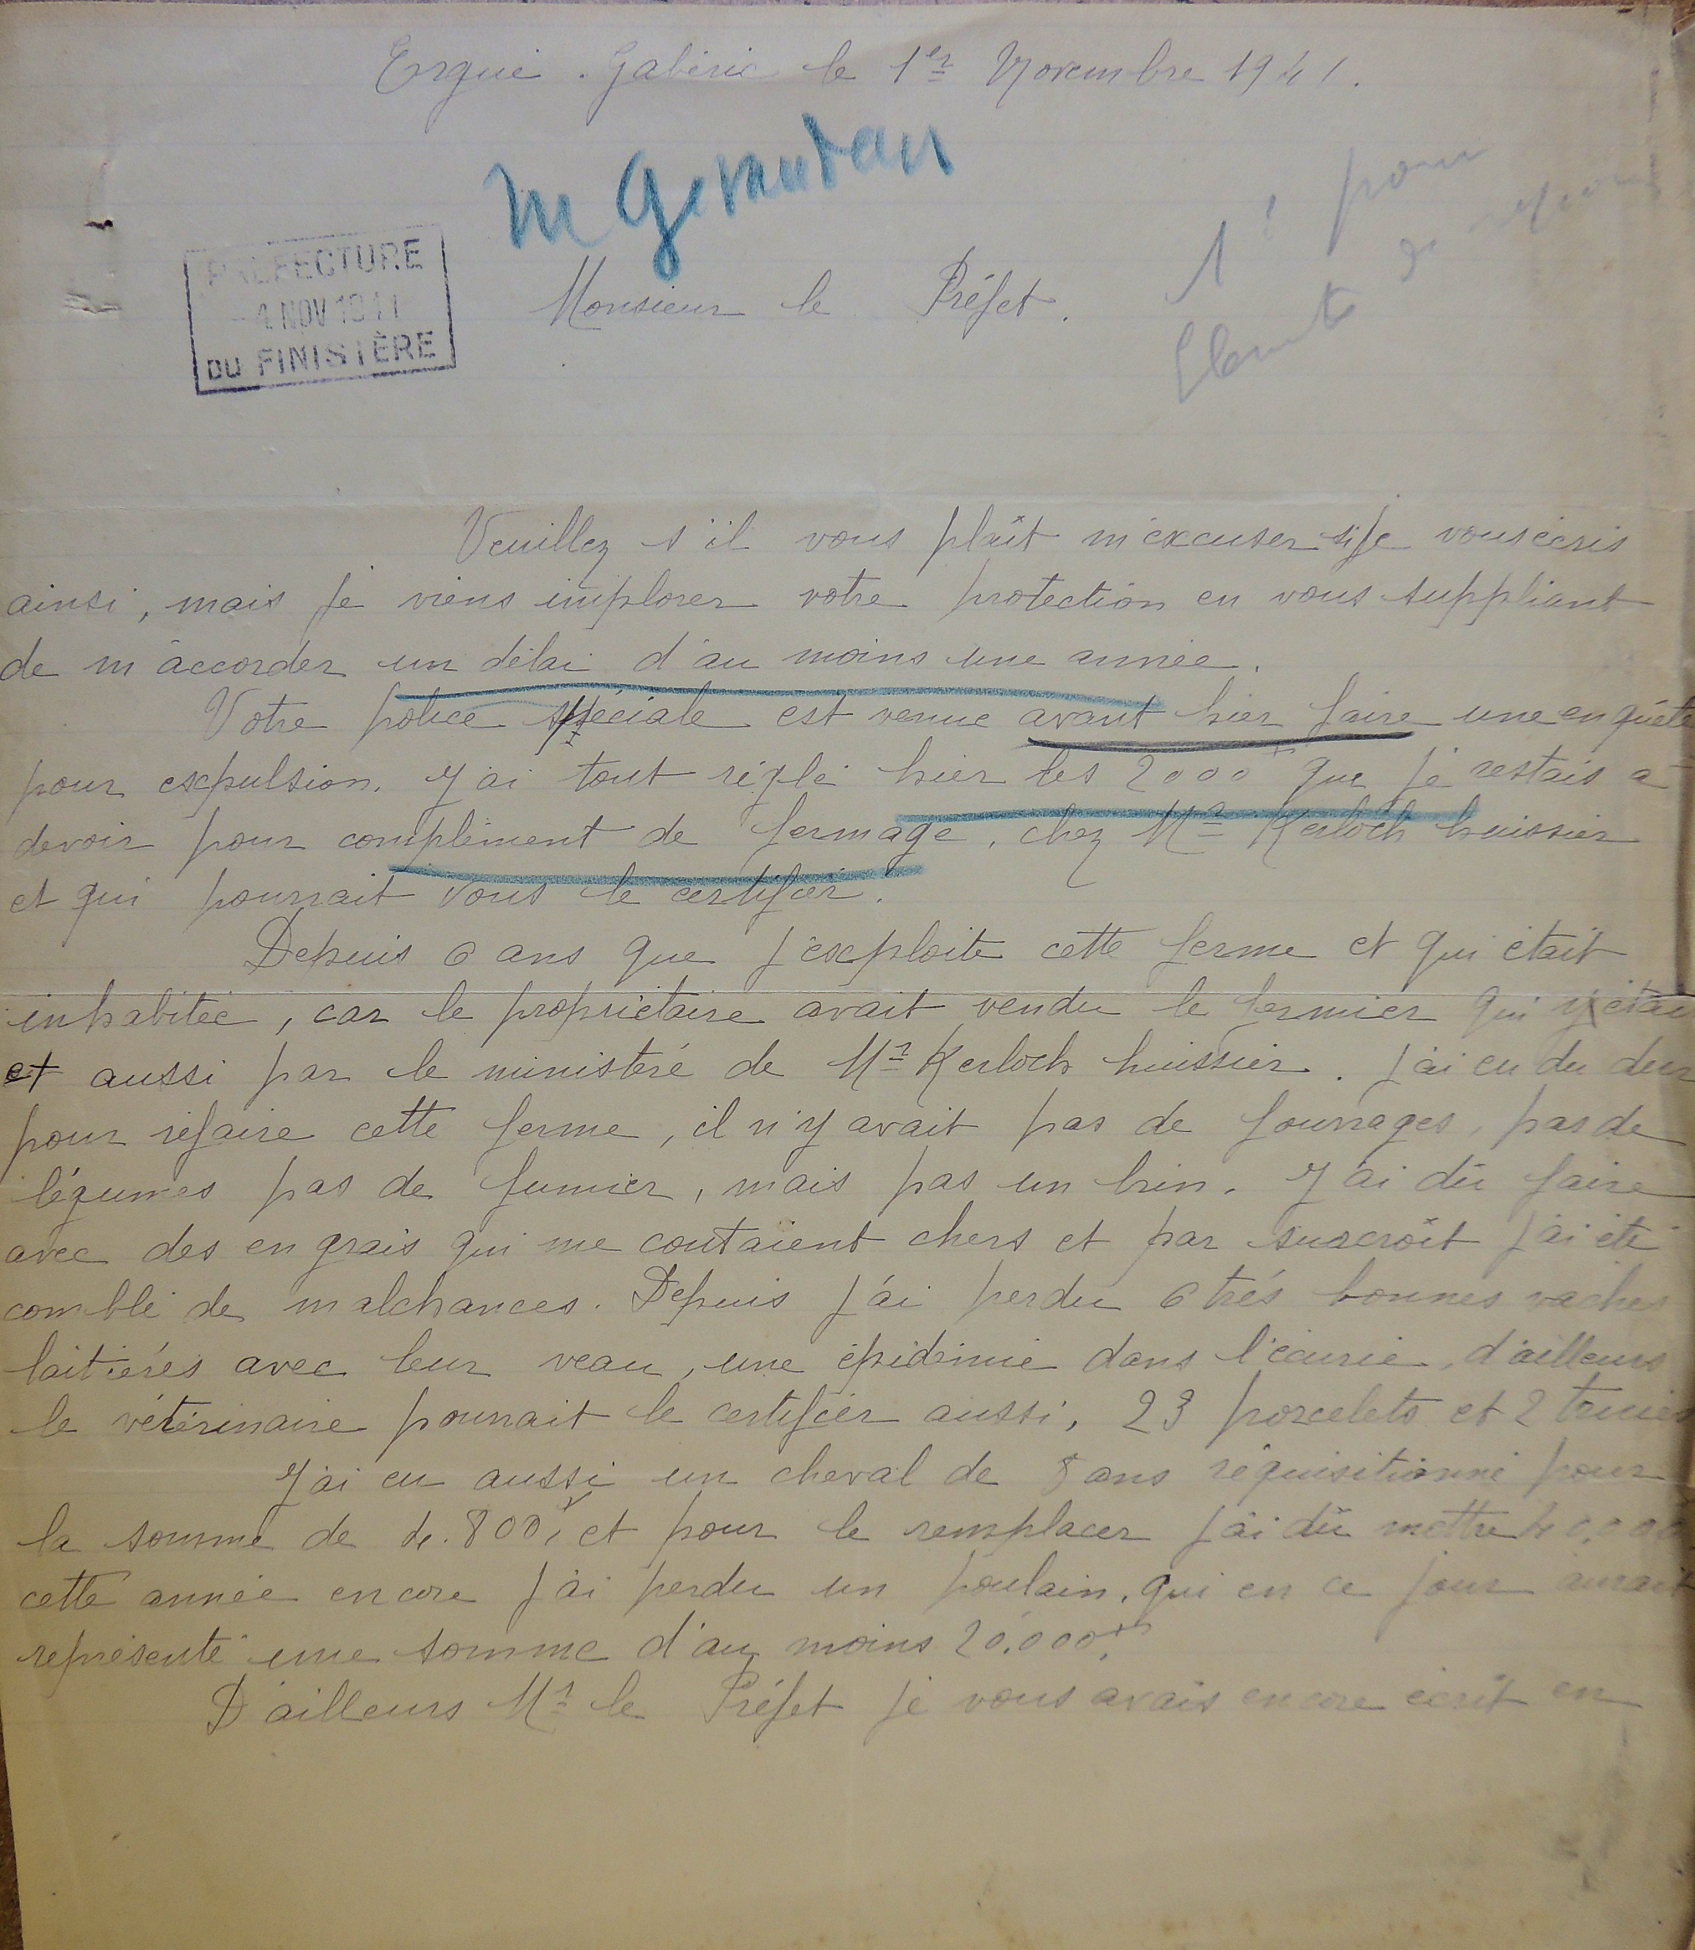 Ergué. Gabéric le 1er Novembre 1941.
M Geraudan
1° pour
PREFECTURE
- 4 NOV 1941
DU FINISTÈRE
Monsieur le Préfet.
Veuillez s'il vous plaît m'excuser si je vous écris
ainsi, mais je viens implorer votre protection en vous suppliant
de m'accorder un délai d'au moins une année.
Votre police spéciale est venue avant hier faire une enquête
pour expulsion. J'ai tout réglé hier les 2000 frs que je restais a
devoir pour complément de fermage, chez Mr Kerloch huissier
et qui pourrait vous le certifier.
Depuis 6 ans que j'exploite cette ferme et qui était
inhabitée, car le propriétaire avait vendu le fermier qui y étai
et aussi par le ministéré de Mr Kerloch huissier. j'ai eu du dur
pour refaire cette ferme, il n'y avait pas de fourrages, pas de
légumes pas de fumier, mais pas un brin. J'ai dû faire
avec des engrais qui me coutaient chers et par surcroît j'ai été
comblé de malchances. Depuis j'ai perdu 6 trés bonnes vaches
laitiéres avec leur veau, une épidémie dans l'écurie, d'ailleurs
le vétérinaire pourrait le certifier aussi, 23 porcelets et 2 truies
J'ai eu aussi un cheval de 5 ans réquisitionné pour
la somme de 4.800f, et pour le remplacer j'ai dû mettre 40.000
cette année encore j'ai perdu un poulain, qui en ce jour aurait
représenté une somme d'au moins 20.000frs.
D'ailleurs Mr le Préfet je vous avais encore écrit en